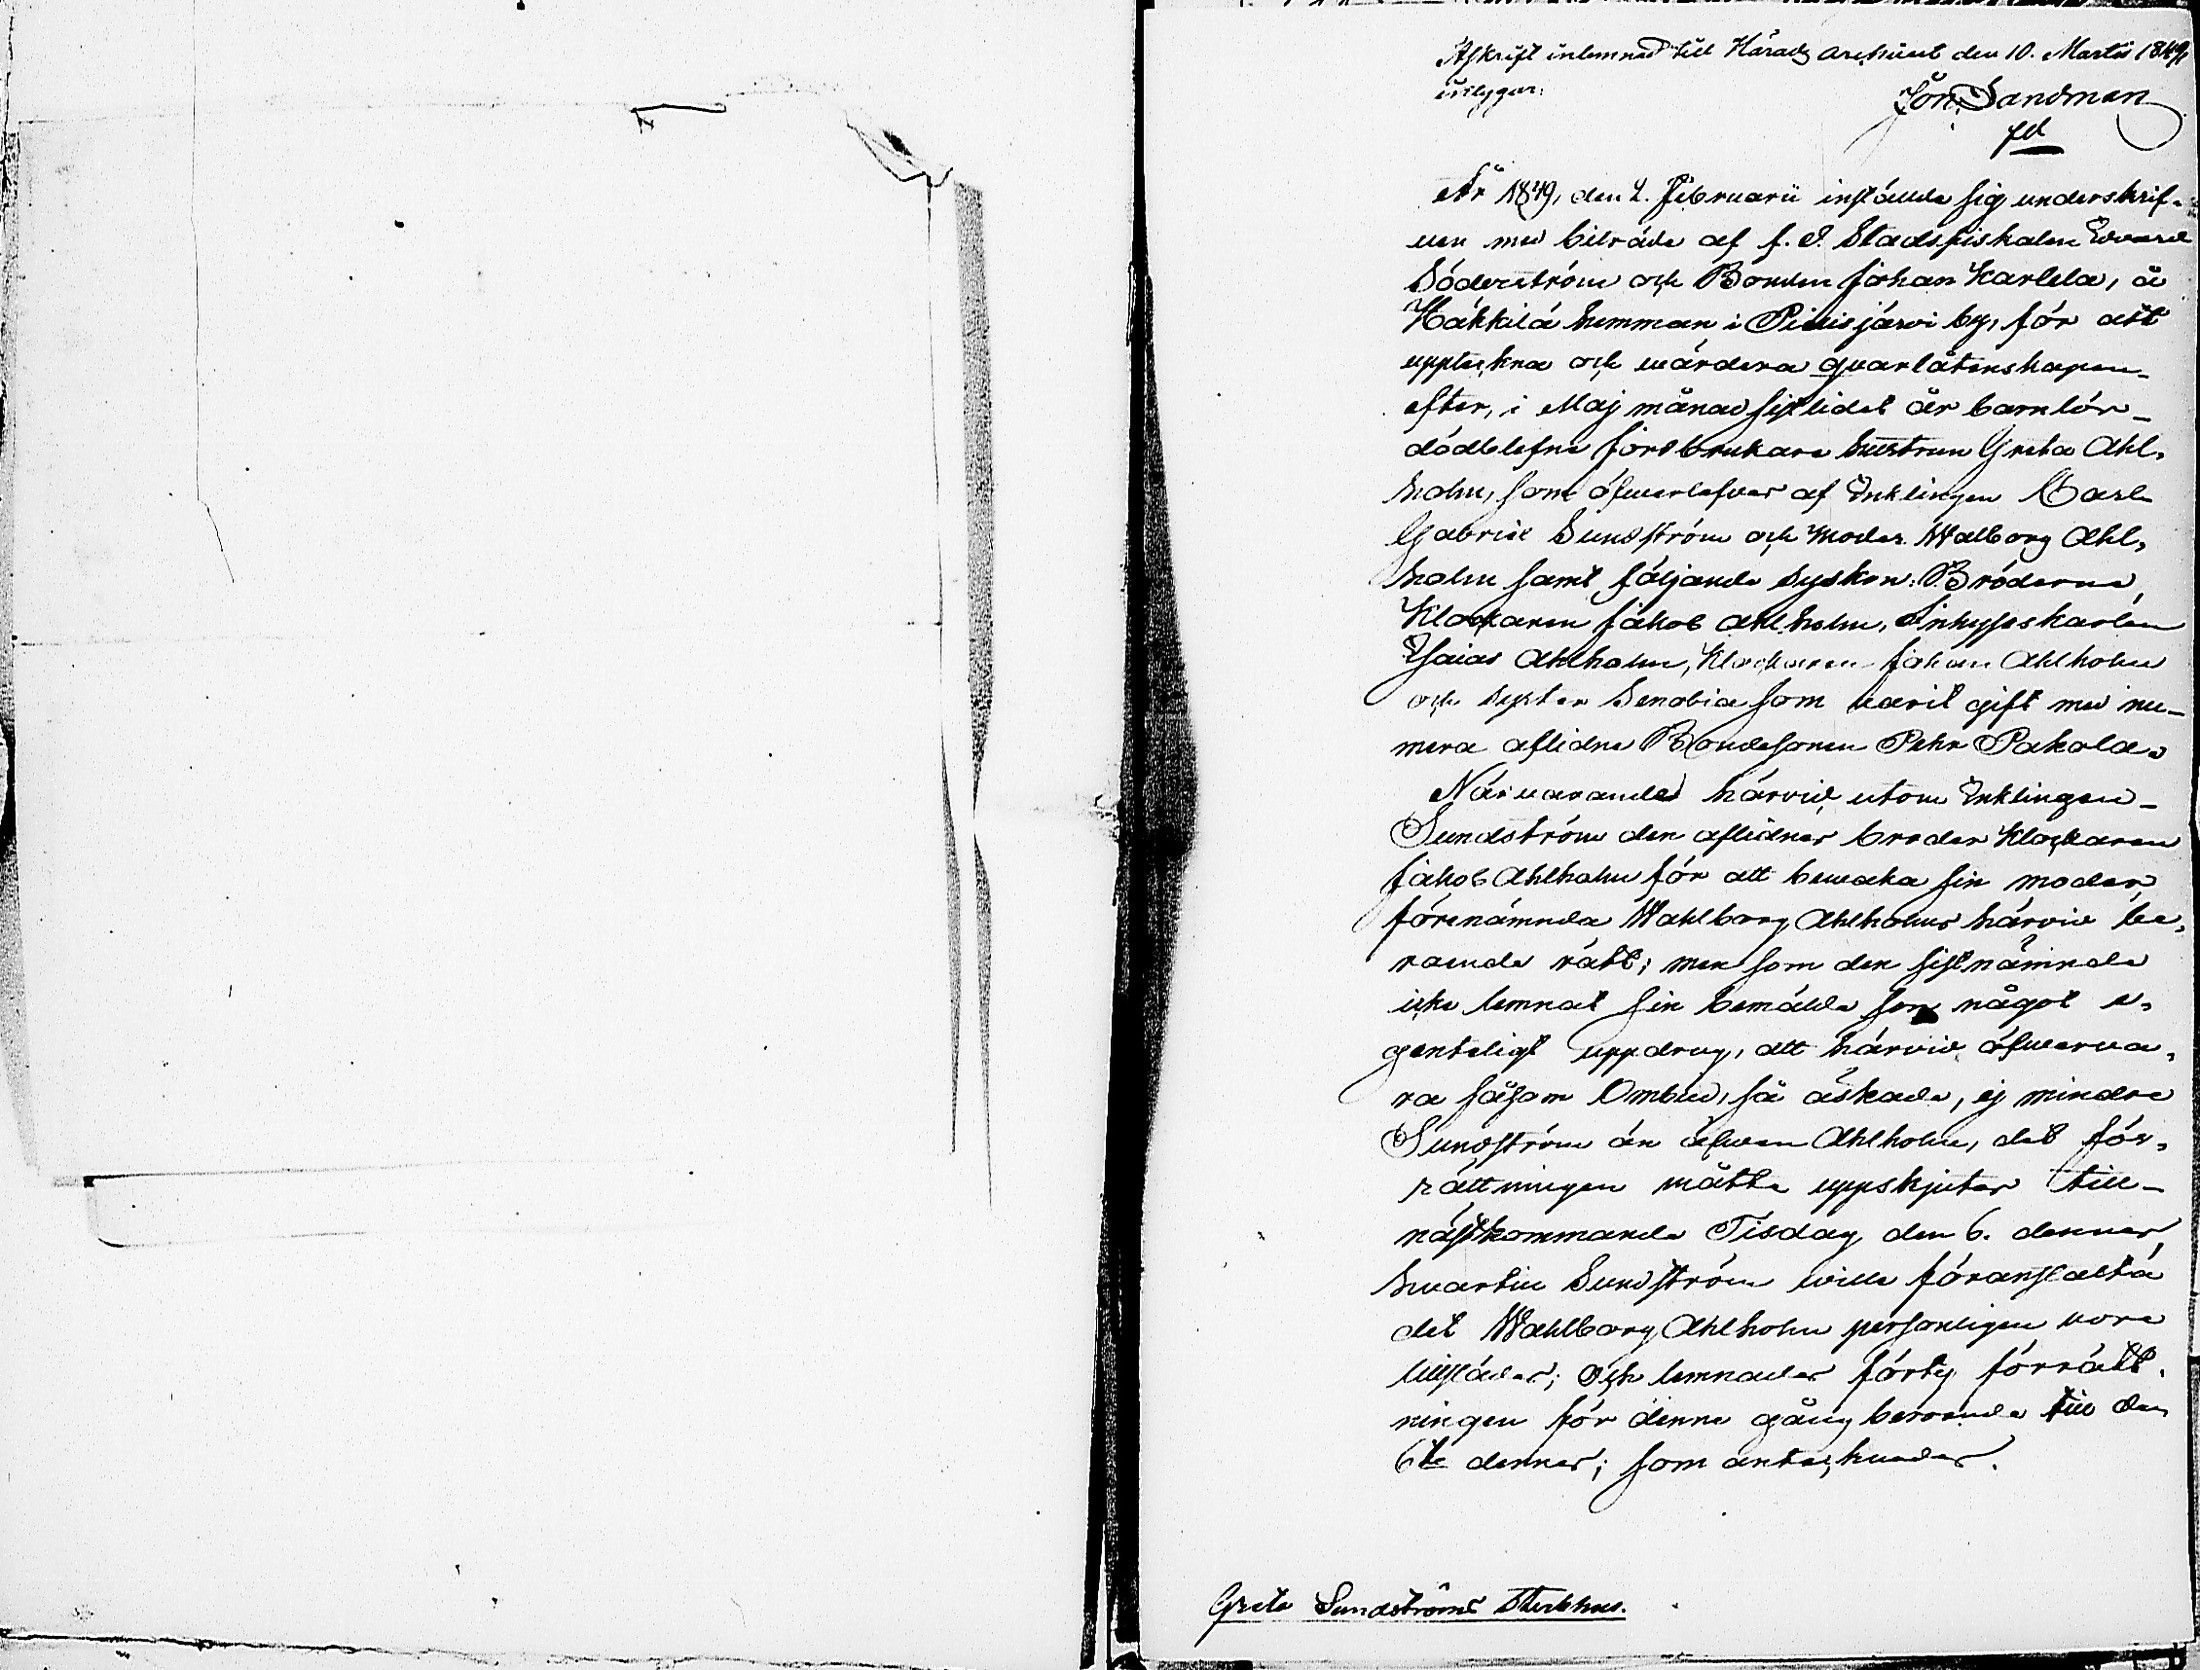 Afskrift inlemnad till Härads archivet den 10. Martii 1849,
intygar:
Jon. Sandman
År 1849, den 2. Februarii instälde sig underskrif-
ven med biträde af f. d. Stadsfiskalen Edvard
Söderström och Bonden Johan Karlela, å
Häkkilä hemman i Pidisjärvi by, för att
uppteckna och wärdera qvarlåtenskapen
efter, i Maj månad sistlidet år barnlös
dödblefne jordbrukare hustrun Greta Ahl-
holm, som öfwerlefves af Enklingen Carl
Gabriel Sundström och moder Walborg Ahl-
holm samt följande syskon: Bröderne,
Klockaren Jakob Ahlholm, Inhyseskarlen
Esaias Ahlholm, Klockaren Johan Ahlholm
och syster Senobia som varit gift med nu-
mera aflidne Bondesonen Pehr Pakola.
Närvarande härvid utom Enklingen
Sundström den aflidnes broder Klockaren
Jakob Ahlholm för att bewaka sin moder
förenämnda Wahlborg Ahlholms härvid be-
roende rätt; men som den sistnämnde
icke lemnat sin bemälde son något e-
genteligt uppdrag, att härvid öfwerva-
ra såsom Ombud, så äskade, ej mindre
Sundström än äfwen Ahlholm, det för-
rättningen måtte uppskjutas till
nästkommande Tisdag den 6. dennes,
hvartill Sundström wille föranstalta
det Wahlborg Ahlholm personligen vore
tillstädes; och lemnades förty förrätt-
ningen för denne gång beroende till den
6te dennes; som antecknades.
Greta Sundströms Sterbhus.